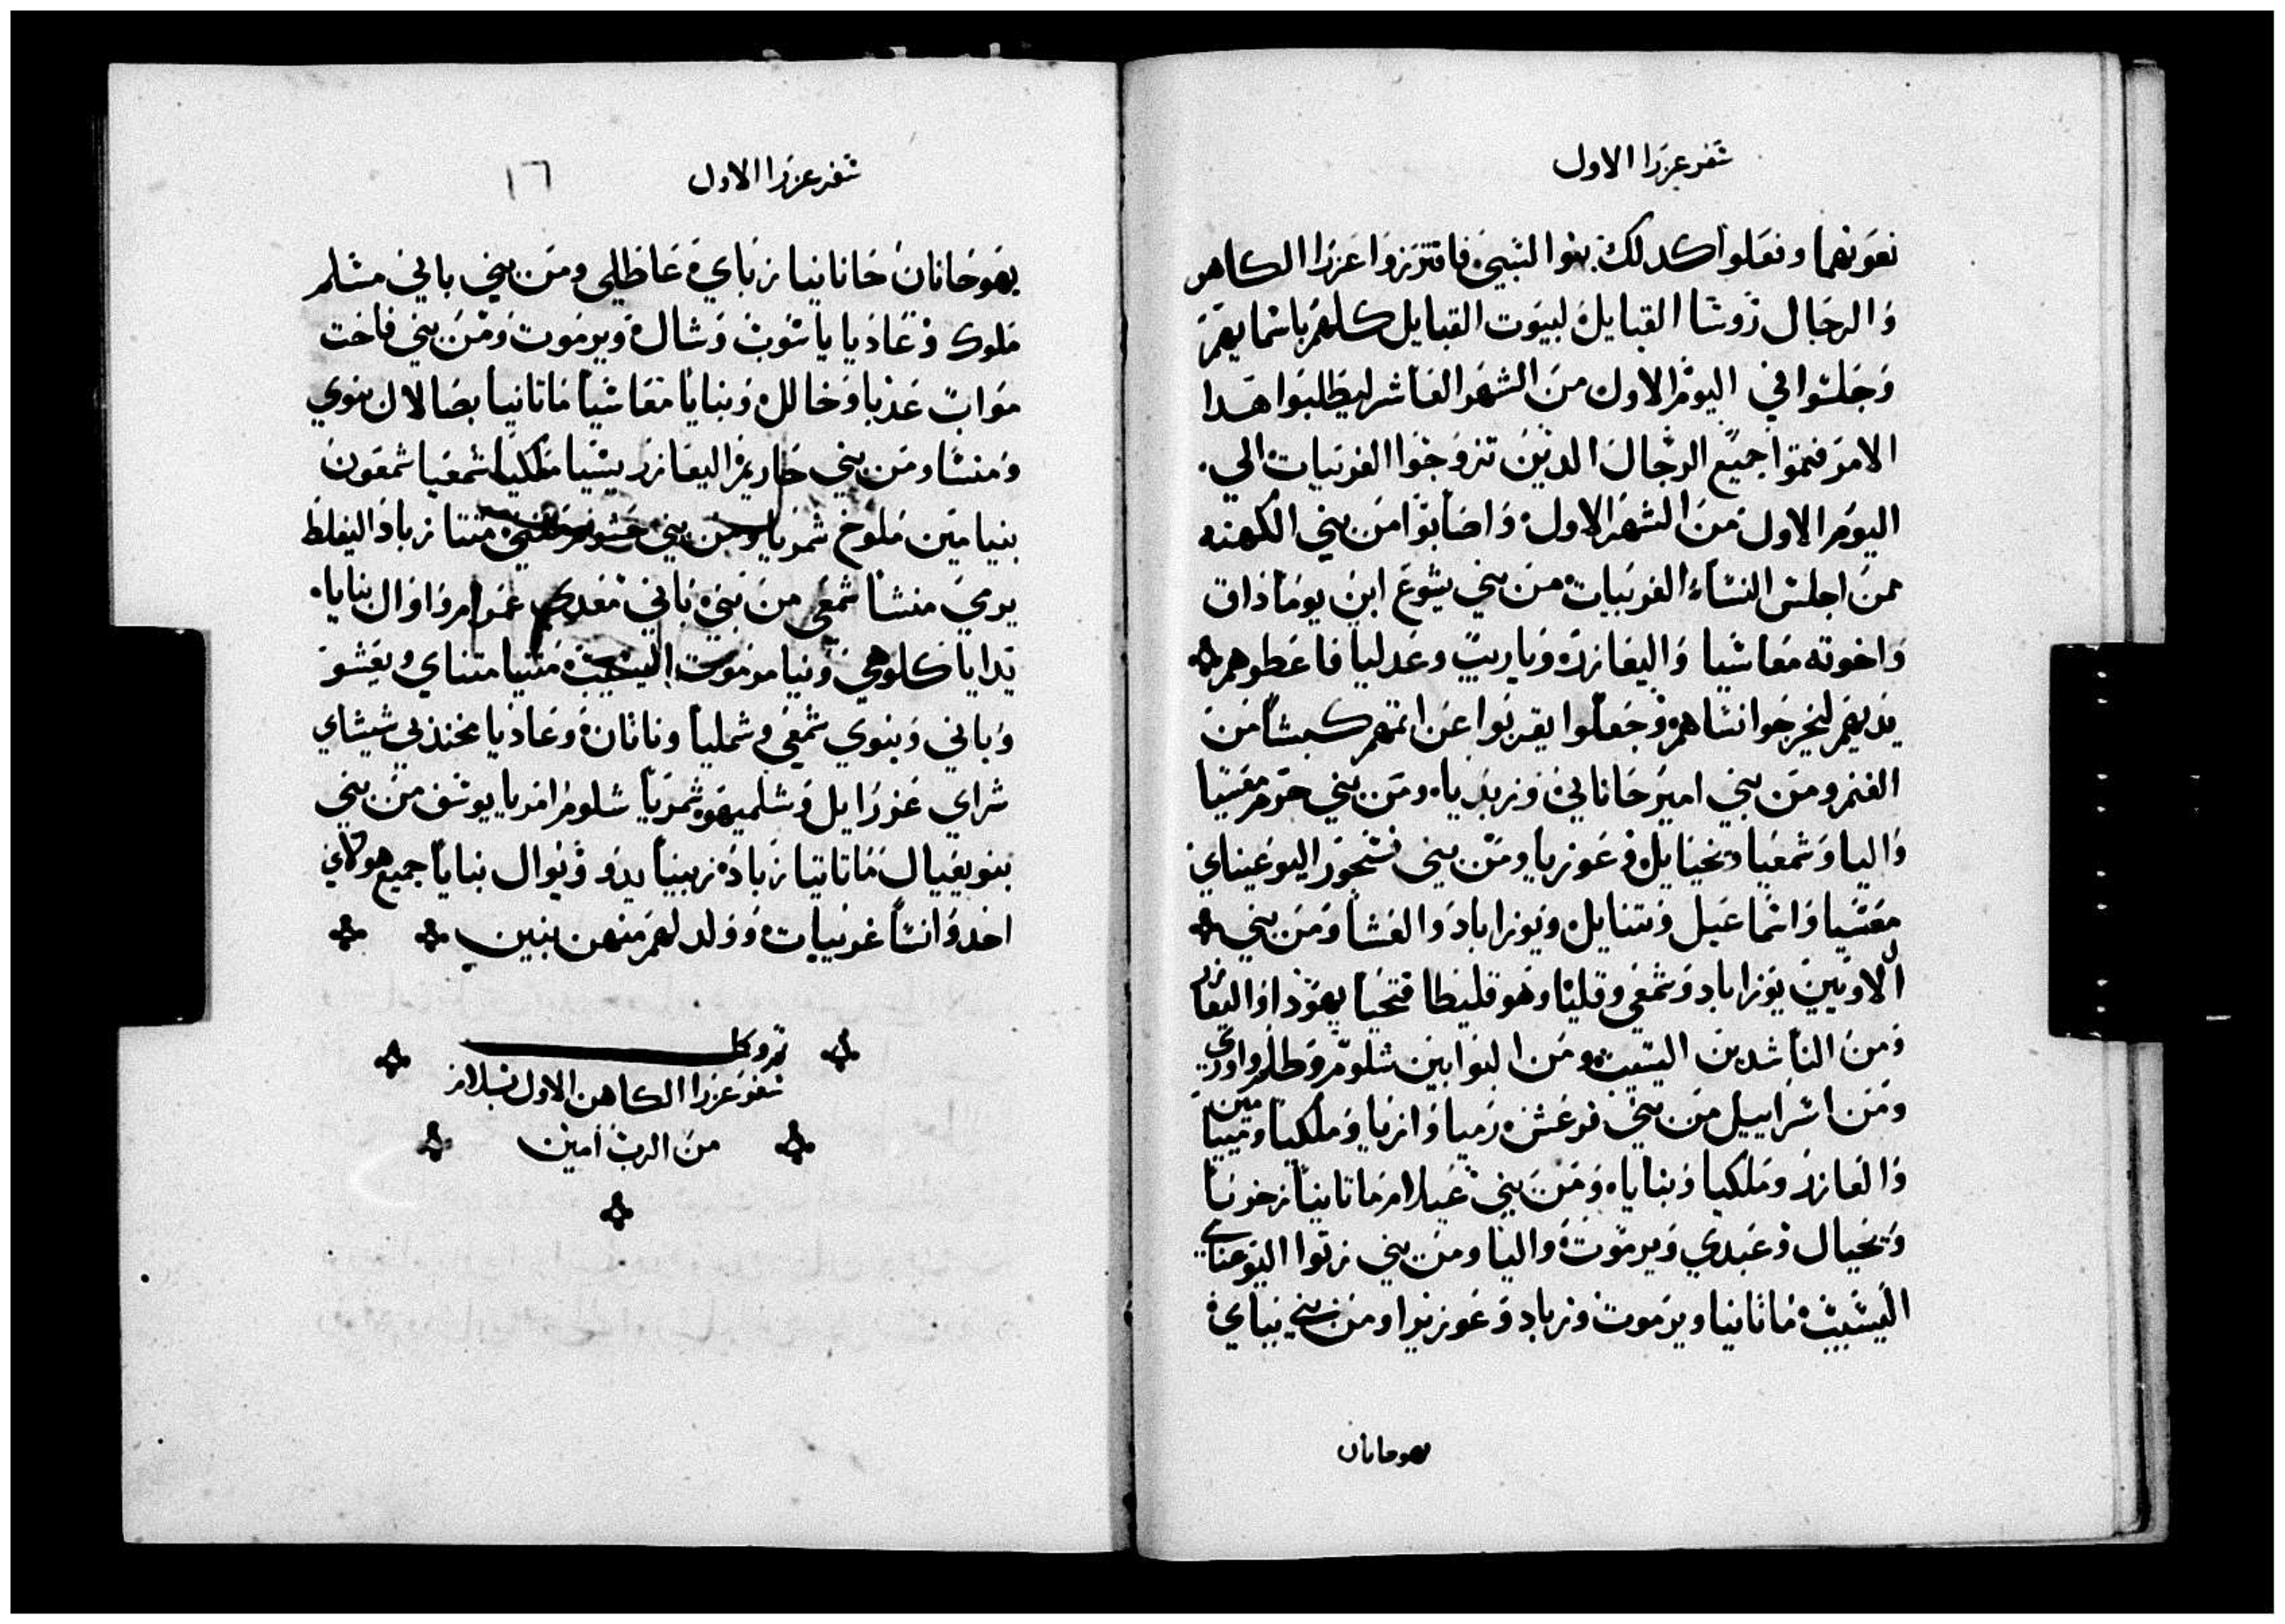 سفر عزرا الاول
نعونهما وفعلوا كدلك بنوا السبي فافترزوا عزرا الكاهن
والرجال روسا القبايل لبيوت القبايل كلهم باسمايهم
وجلسوا في اليوم الاول من الشهر العاشر ليطلبوا هدا
الامر فتموا جميع الرجال الدين تزوجوا الغريبات الي
اليوم الاول من الشهر الاول واصابوا من بني الكهنه
ممن اجلس النساء الغريبات من بني يشوع ابن يوماذاق
واخوته معاشيا واليعازر وياريب وعدليا فاعطوهم
يديهم ليخرجوا نساهم وجعلوا يقربوا عن اتمهم كبشا من
الغنم ومن بني امير حاناني وزبديا ومن بني حرم معسيا
واليا وشمعيا ويحيايل وعوزيا ومن بني فسحور اليوعيناي
معسيا واسماعيل ونتنايل ويوزاباد والعسا ومن بني
اللاويين يوزاباد وشمعي وقليا وهو قليطا فتحيا يهودا واليعازر
ومن الناشدين اليسيب ومن البوابين شلوم وطلم واوري
ومن اسراييل من بني فرعش رميا وازيا وملكيا وميامين
والعازر وملكيا وبنايا ومن بني عيلام ماتانيا زخريا
ويحيال وعبدي ويرموت واليا ومن بني زتوا اليوعناي
اليشيب ماتانيا ويرموت وزباد وعوزيرا ومن بني بباي
يهوحانان
سفر عزرا الاول ١٦
يهوحانان حانانيا زباي عاظلي ومن بني باني مشلم
ملوك وعاديا ياشوب وشال ويرموت ومن بني فاخت
مواب عدنا وخالل وبنايا معاشيا ماتانيا بصالال بنوي
ومنسا ومن بني حاريم اليعازر يشيا ملكيا شمعيا شمعون
بنيامين ملوخ شمريا ومن بني حشوم متنا زباد اليفلط
يرمي منشا شمعي من بني باني معدي عمرام واوال بنايا
بدايا كلوهي ونيا مرموت اليشيب متنيا متناي ويعشو
وباني وبنوي شمعي وشمليا وناتان وعاديا مخندبي شيشاي
شراي عزرايل وشلميهو شمريا شلوم امريا يوسف من بني
بنو يعيال ماتاتيا زباد زبينا يدو ويوال بنايا جميع هولاي
اخدوا نسا غريبات وولد لهم منهن بنين
تم وكل
سفر عزرا الكاهن الاول بسلام
من الرب امين